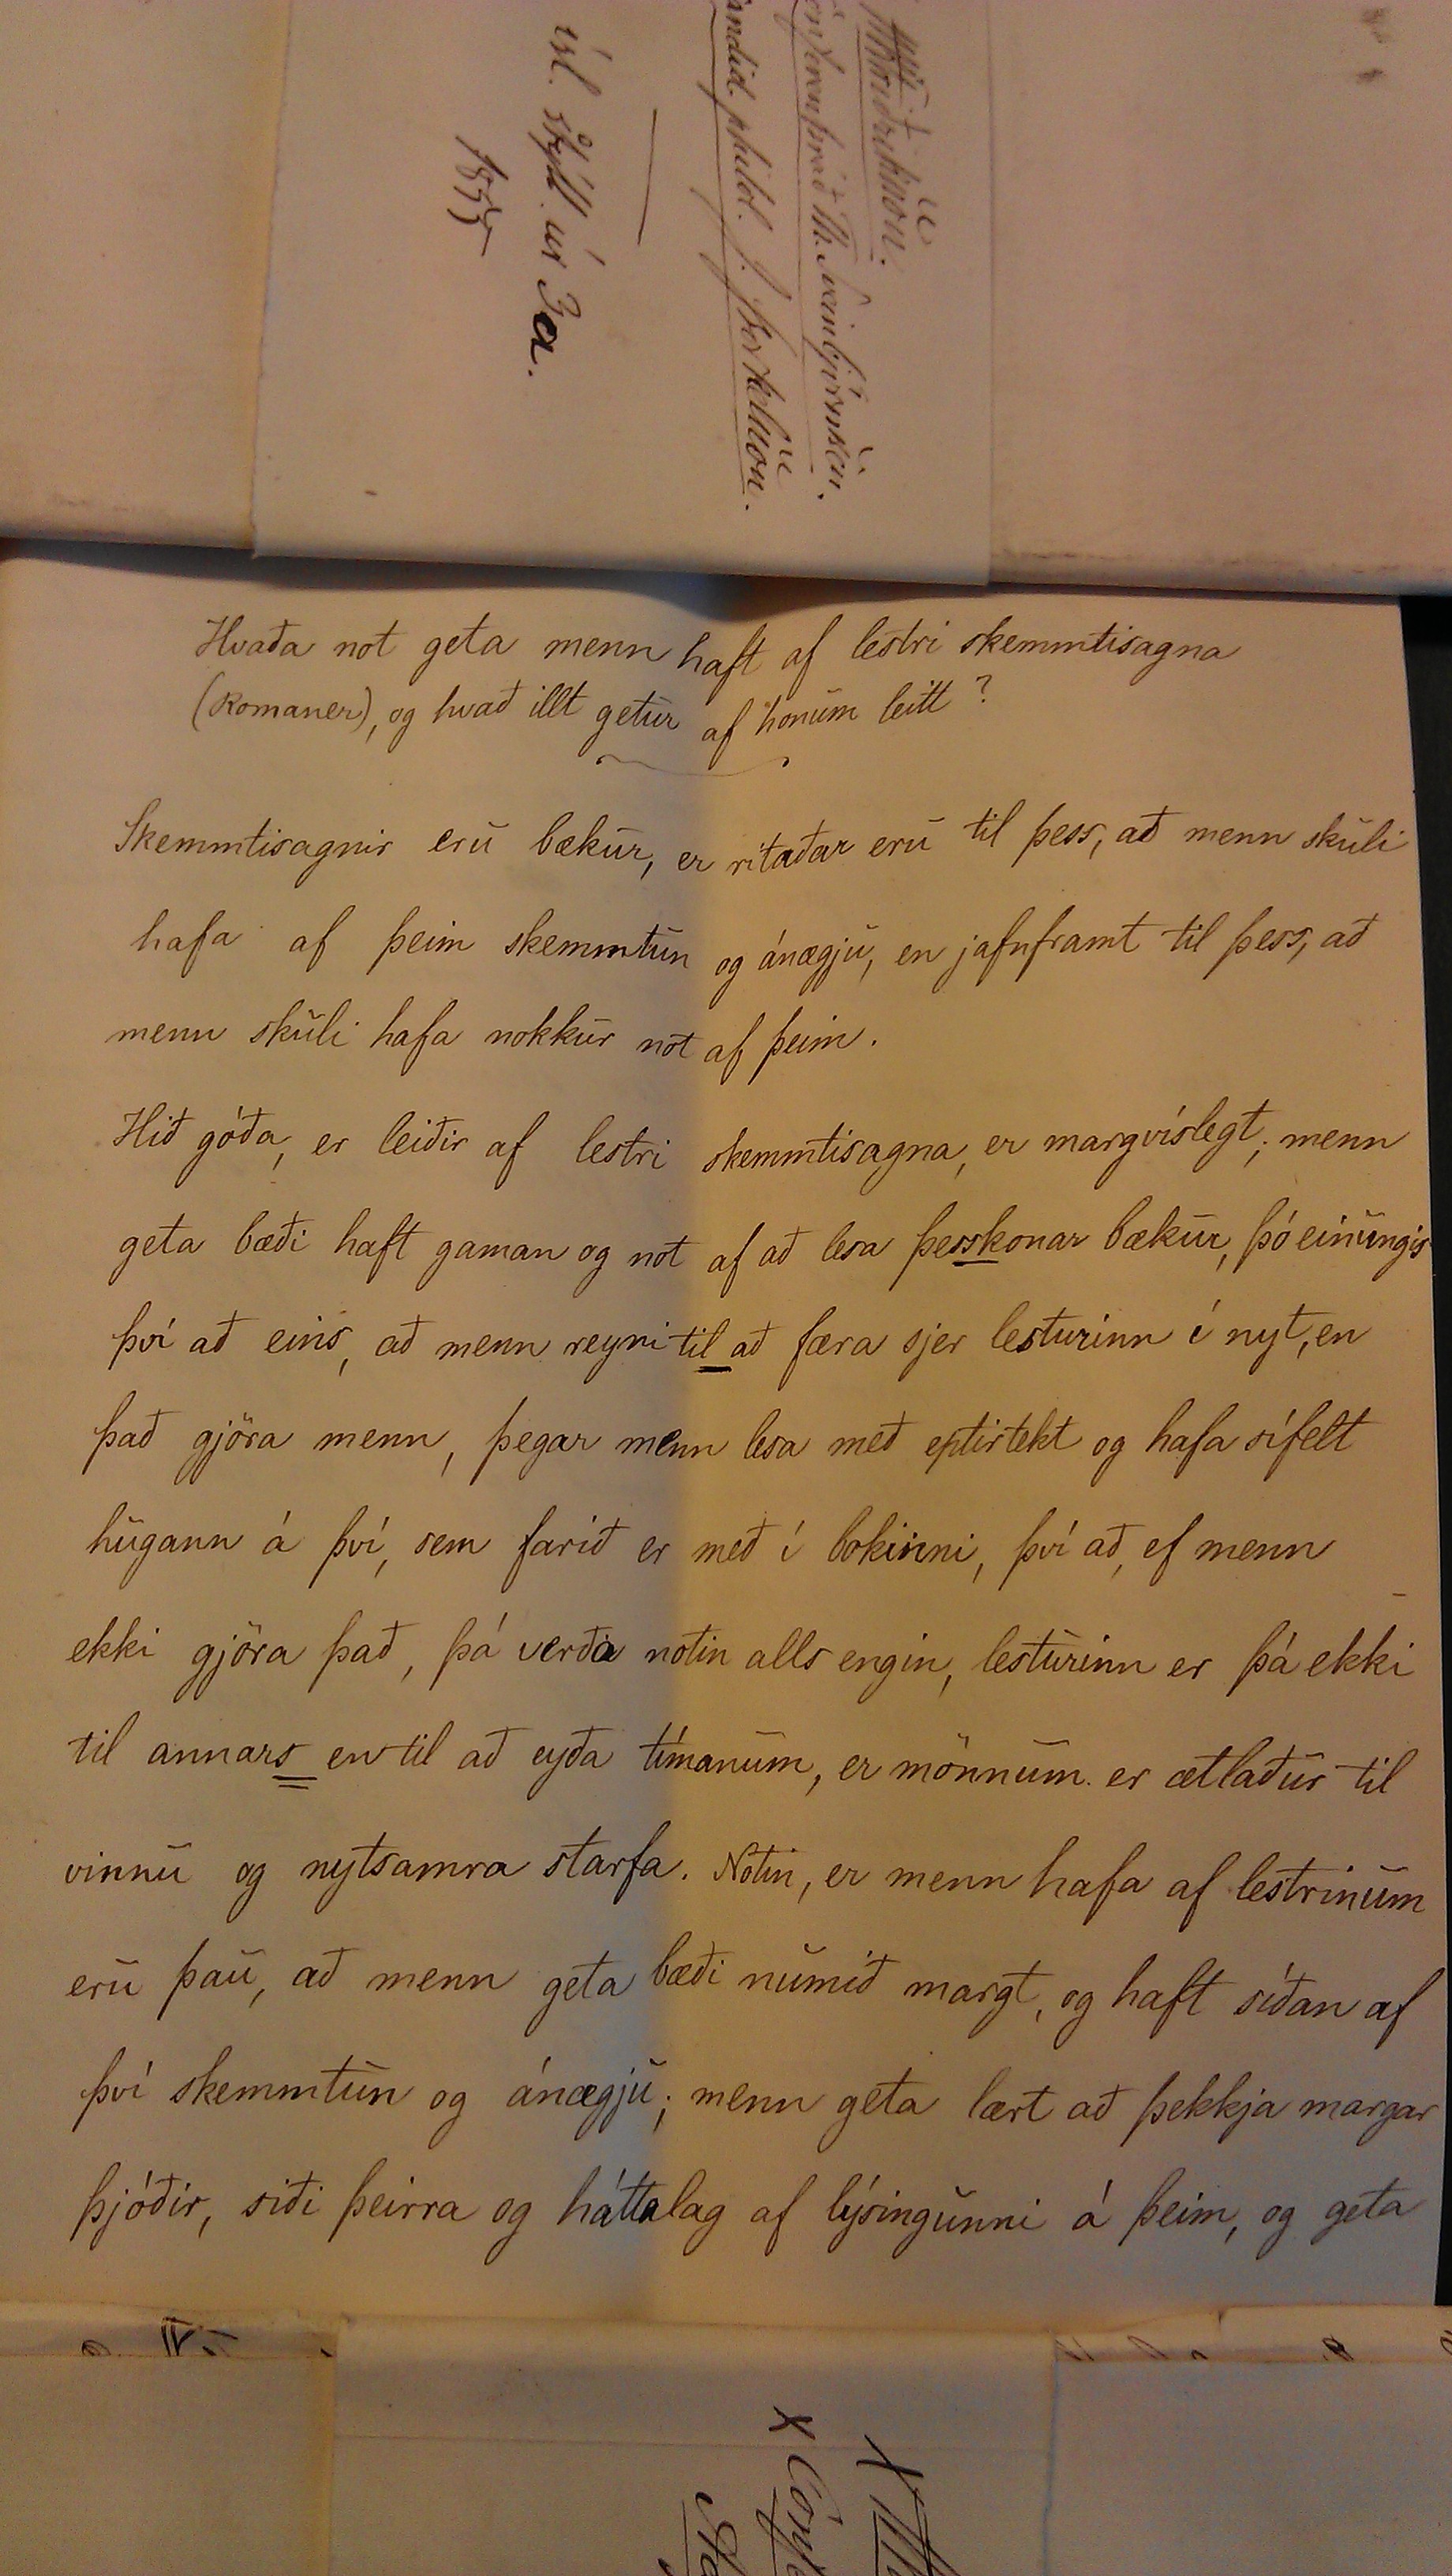 Th. Sveinbjörnsson.
philol. J. Þorkelsson.
ísl. stýll. úr 3 a.
1855
Hvaða not geta menn haft af lestri skemmtisagna
(Romaner), og hvað illt getur af honum leitt?
Skemmtisagnir eru bækur, er ritaðar eru til þess, að menn skuli
hafa af þeim skemmtun og ánægju, en jafnframt til þess, að
menn skuli hafa nokkur not af þeim.
Hið góða, er leiðir af lestri skemmtisagna, er margvíslegt; menn
geta bæði haft gaman og not af að lesa þesskonar bækur, þó einungis
því að eins, að menn reyni til að færa sjer lesturinn í nyt, en
það gjöra menn, þegar menn lesa með eptirtekt og hafa sífelt
hugann á því, sem farið er með í bokinni, því að, ef menn
ekki gjöra það, þá verða notin alls engin, lesturinn er þá ekki
til annars en til að eyða tímanum, er mönnum er ætlaður til
vinnu og nytsamra starfa. Notin, er menn hafa af lestrinum
eru þau, að menn geta bæði numið margt, og haft síðan af
því skemmtun og ánægju; menn geta lært að þekkja margar
þjóðir, siði þeirra og háttalag af lýsingunni á þeim, og geta